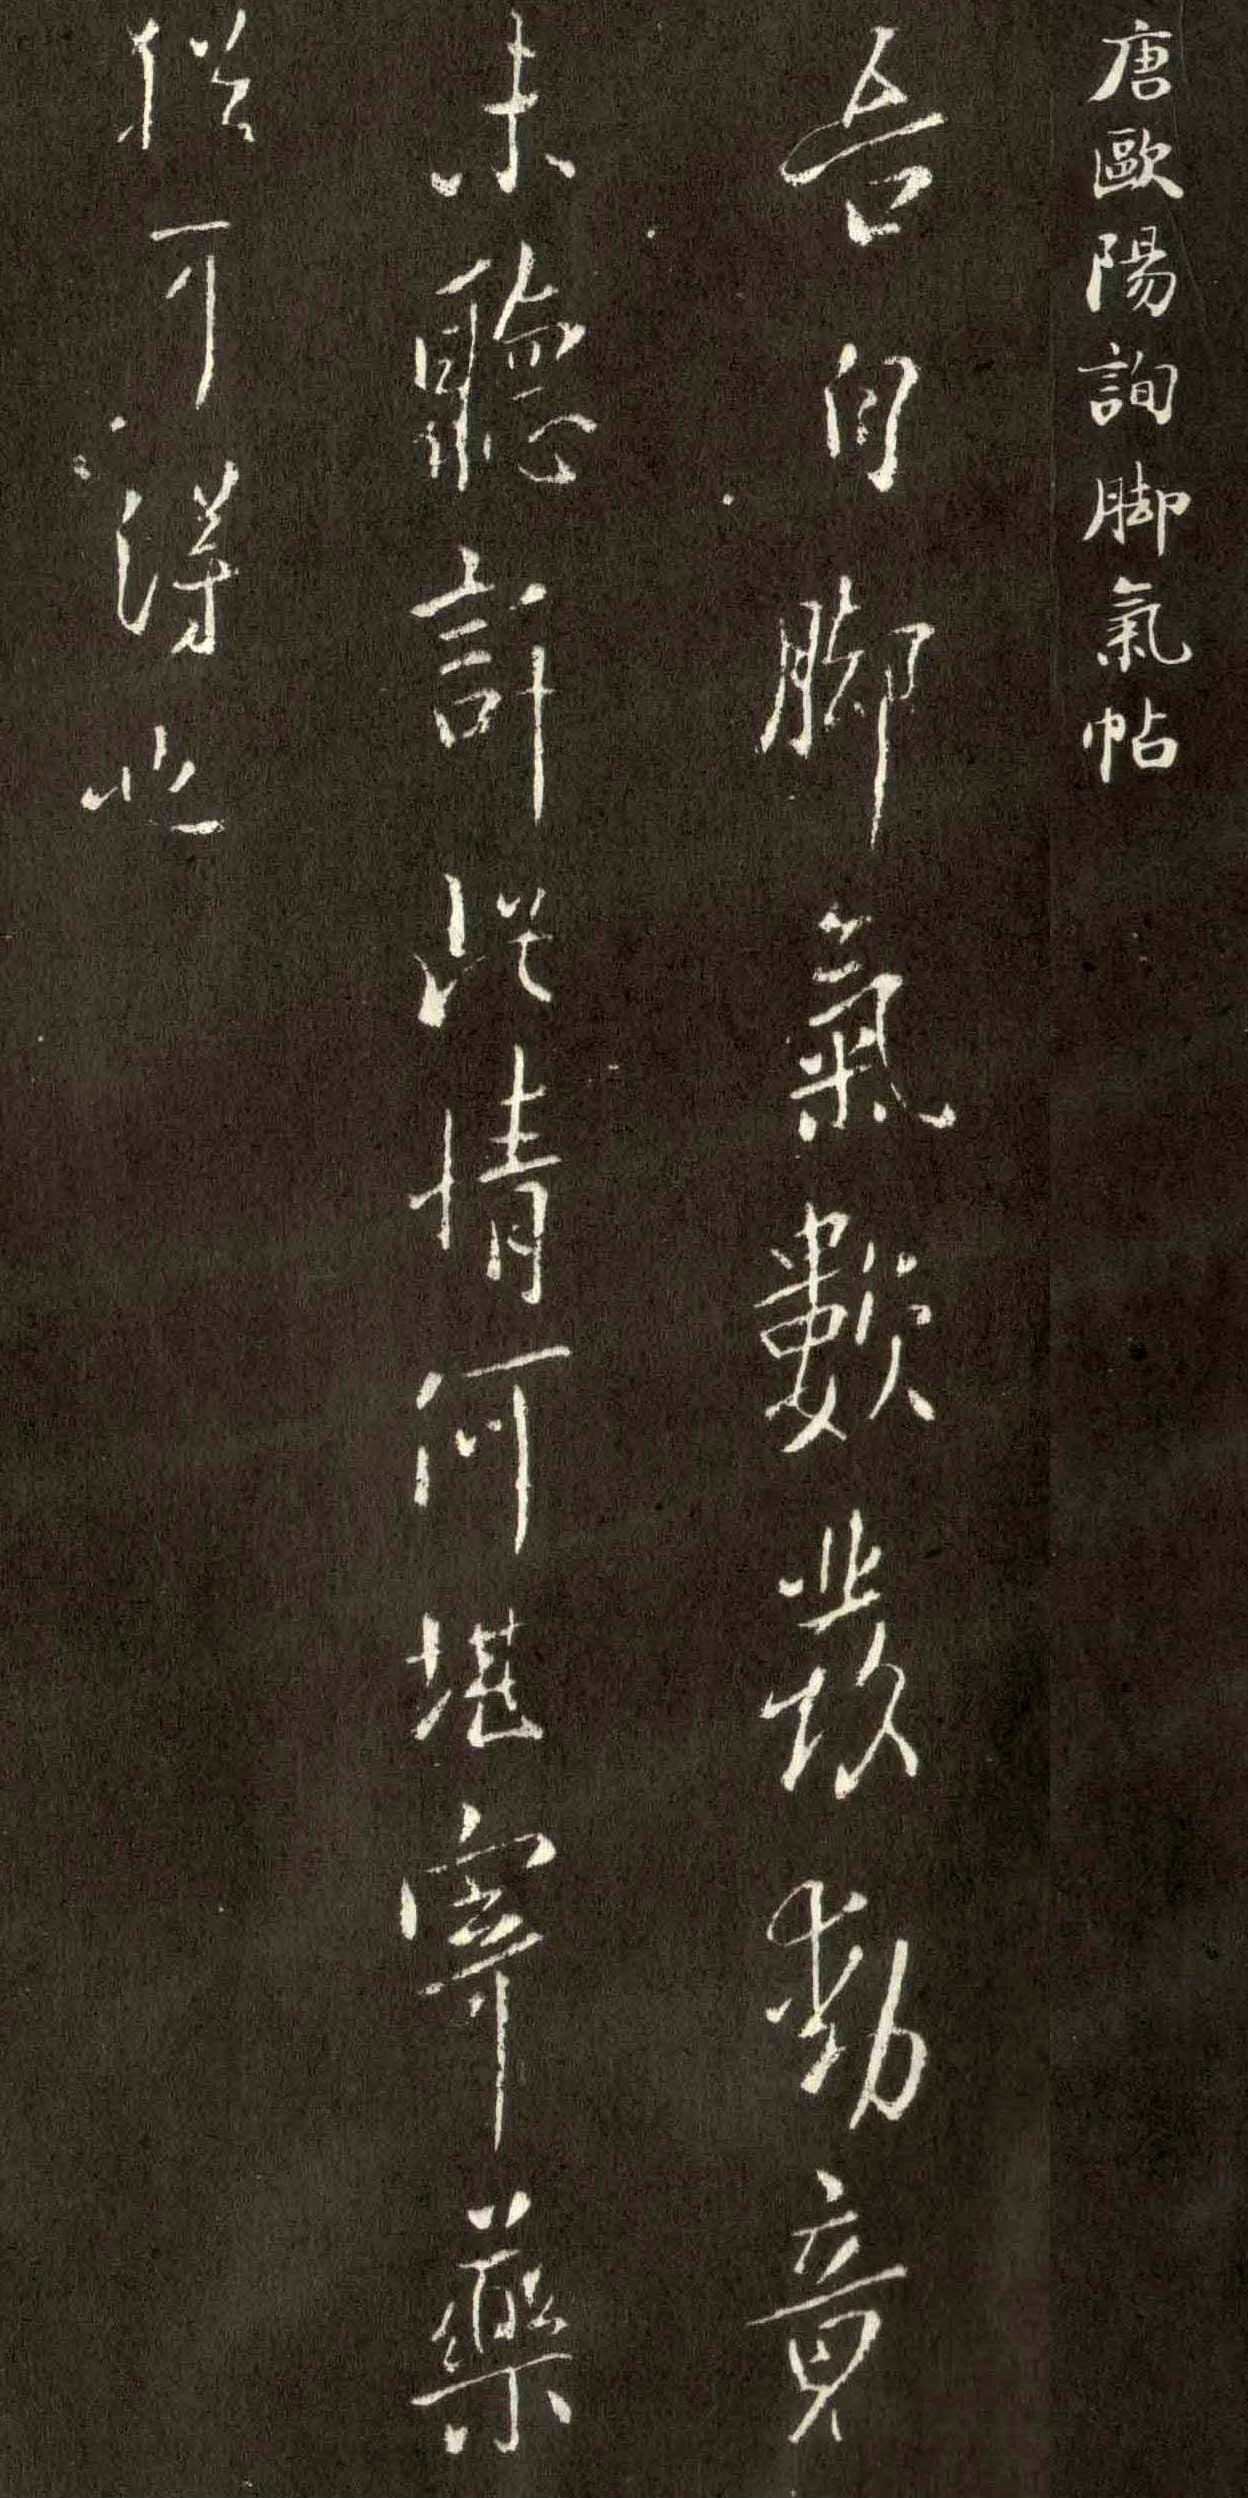 唐歐陽詢脚氣帖
吾自脚氣數發動竟
未聽許此情何堪寄藥
猶可得也